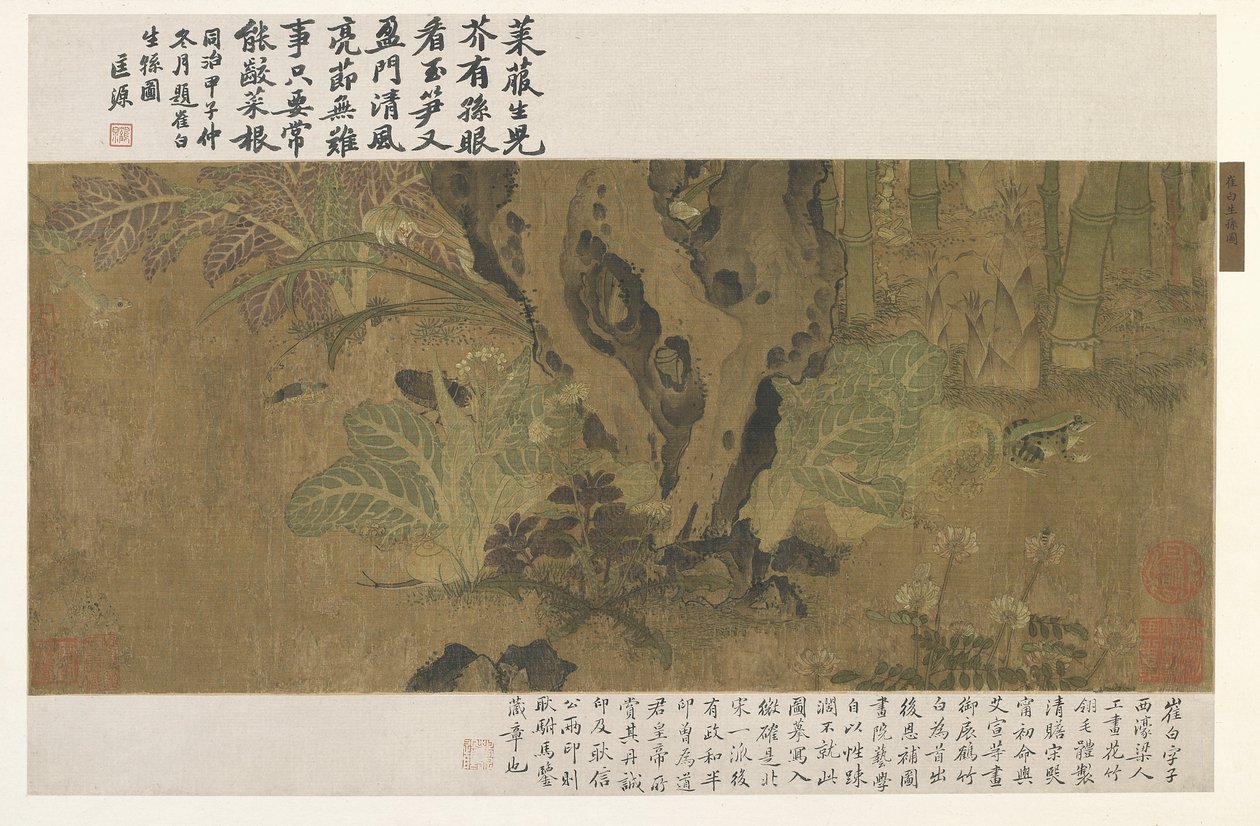 莱菔生兒
芥有孫眼
看玉笋又
盈門清風
亮節無難
事只要常
能齩菜根
同治甲子仲
冬月題崔白
生孫圖
匡源
崔白生孫圖
崔白字子
西濠梁人
工畫花竹
翎毛體製
清贍宋熙
甯初命與
艾宣等畫
御扆鶴竹
白為首出
後恩補圖
畫院藝學
自以性踈
濶不就此
圖摹寫入
微確是北
宋一派後
有政和半
印曾為道
君皇帝所
賞其丹誠
印及耿信
公兩印則
耿駙馬鑒
藏章也